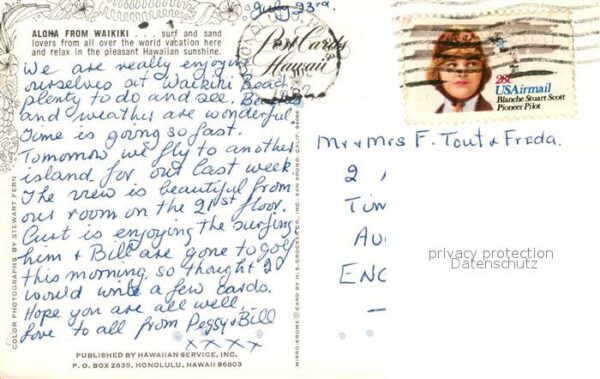 July 23rd.
ALOHA FROM WAIKIKI . . . surf and sand
lovers from all over the world vacation here
and relax in the pleasant Hawaiian sunshine.
We are really enjoying
ourselves at Waikiki Beach
plenty to do and see. Beaches
and weather are wonderful
Time is going so fast.
Tomorrow we fly to another
island for our last week.
The view is beautiful from
our room on the 21st floor.
Curt is enjoying the surfing
him + Bill are gone to golf
this morning, so thought I'd
would write a few cards.
Hope you are all well,
Love to all from Peggy & Bill
xxxx
PUBLISHED BY HAWAIIAN SERVICE, INC.
P. O. BOX 2835, HONOLULU, HAWAII 96803
COLOR PHOTOGRAPHS BY STEWART FERN
MIRRO-KROME ® CARD BY H. S. CROCKER CO., INC. SAN BRUNO, CALIF. 94066
Post Cards
Hawaii
28c
USAirmail
Blanche Stuart Scott
Pioneer Pilot
Mr & Mrs F. Tout & Freda.
2
TIN
AU
ENG
privacy protection
Datenschutz